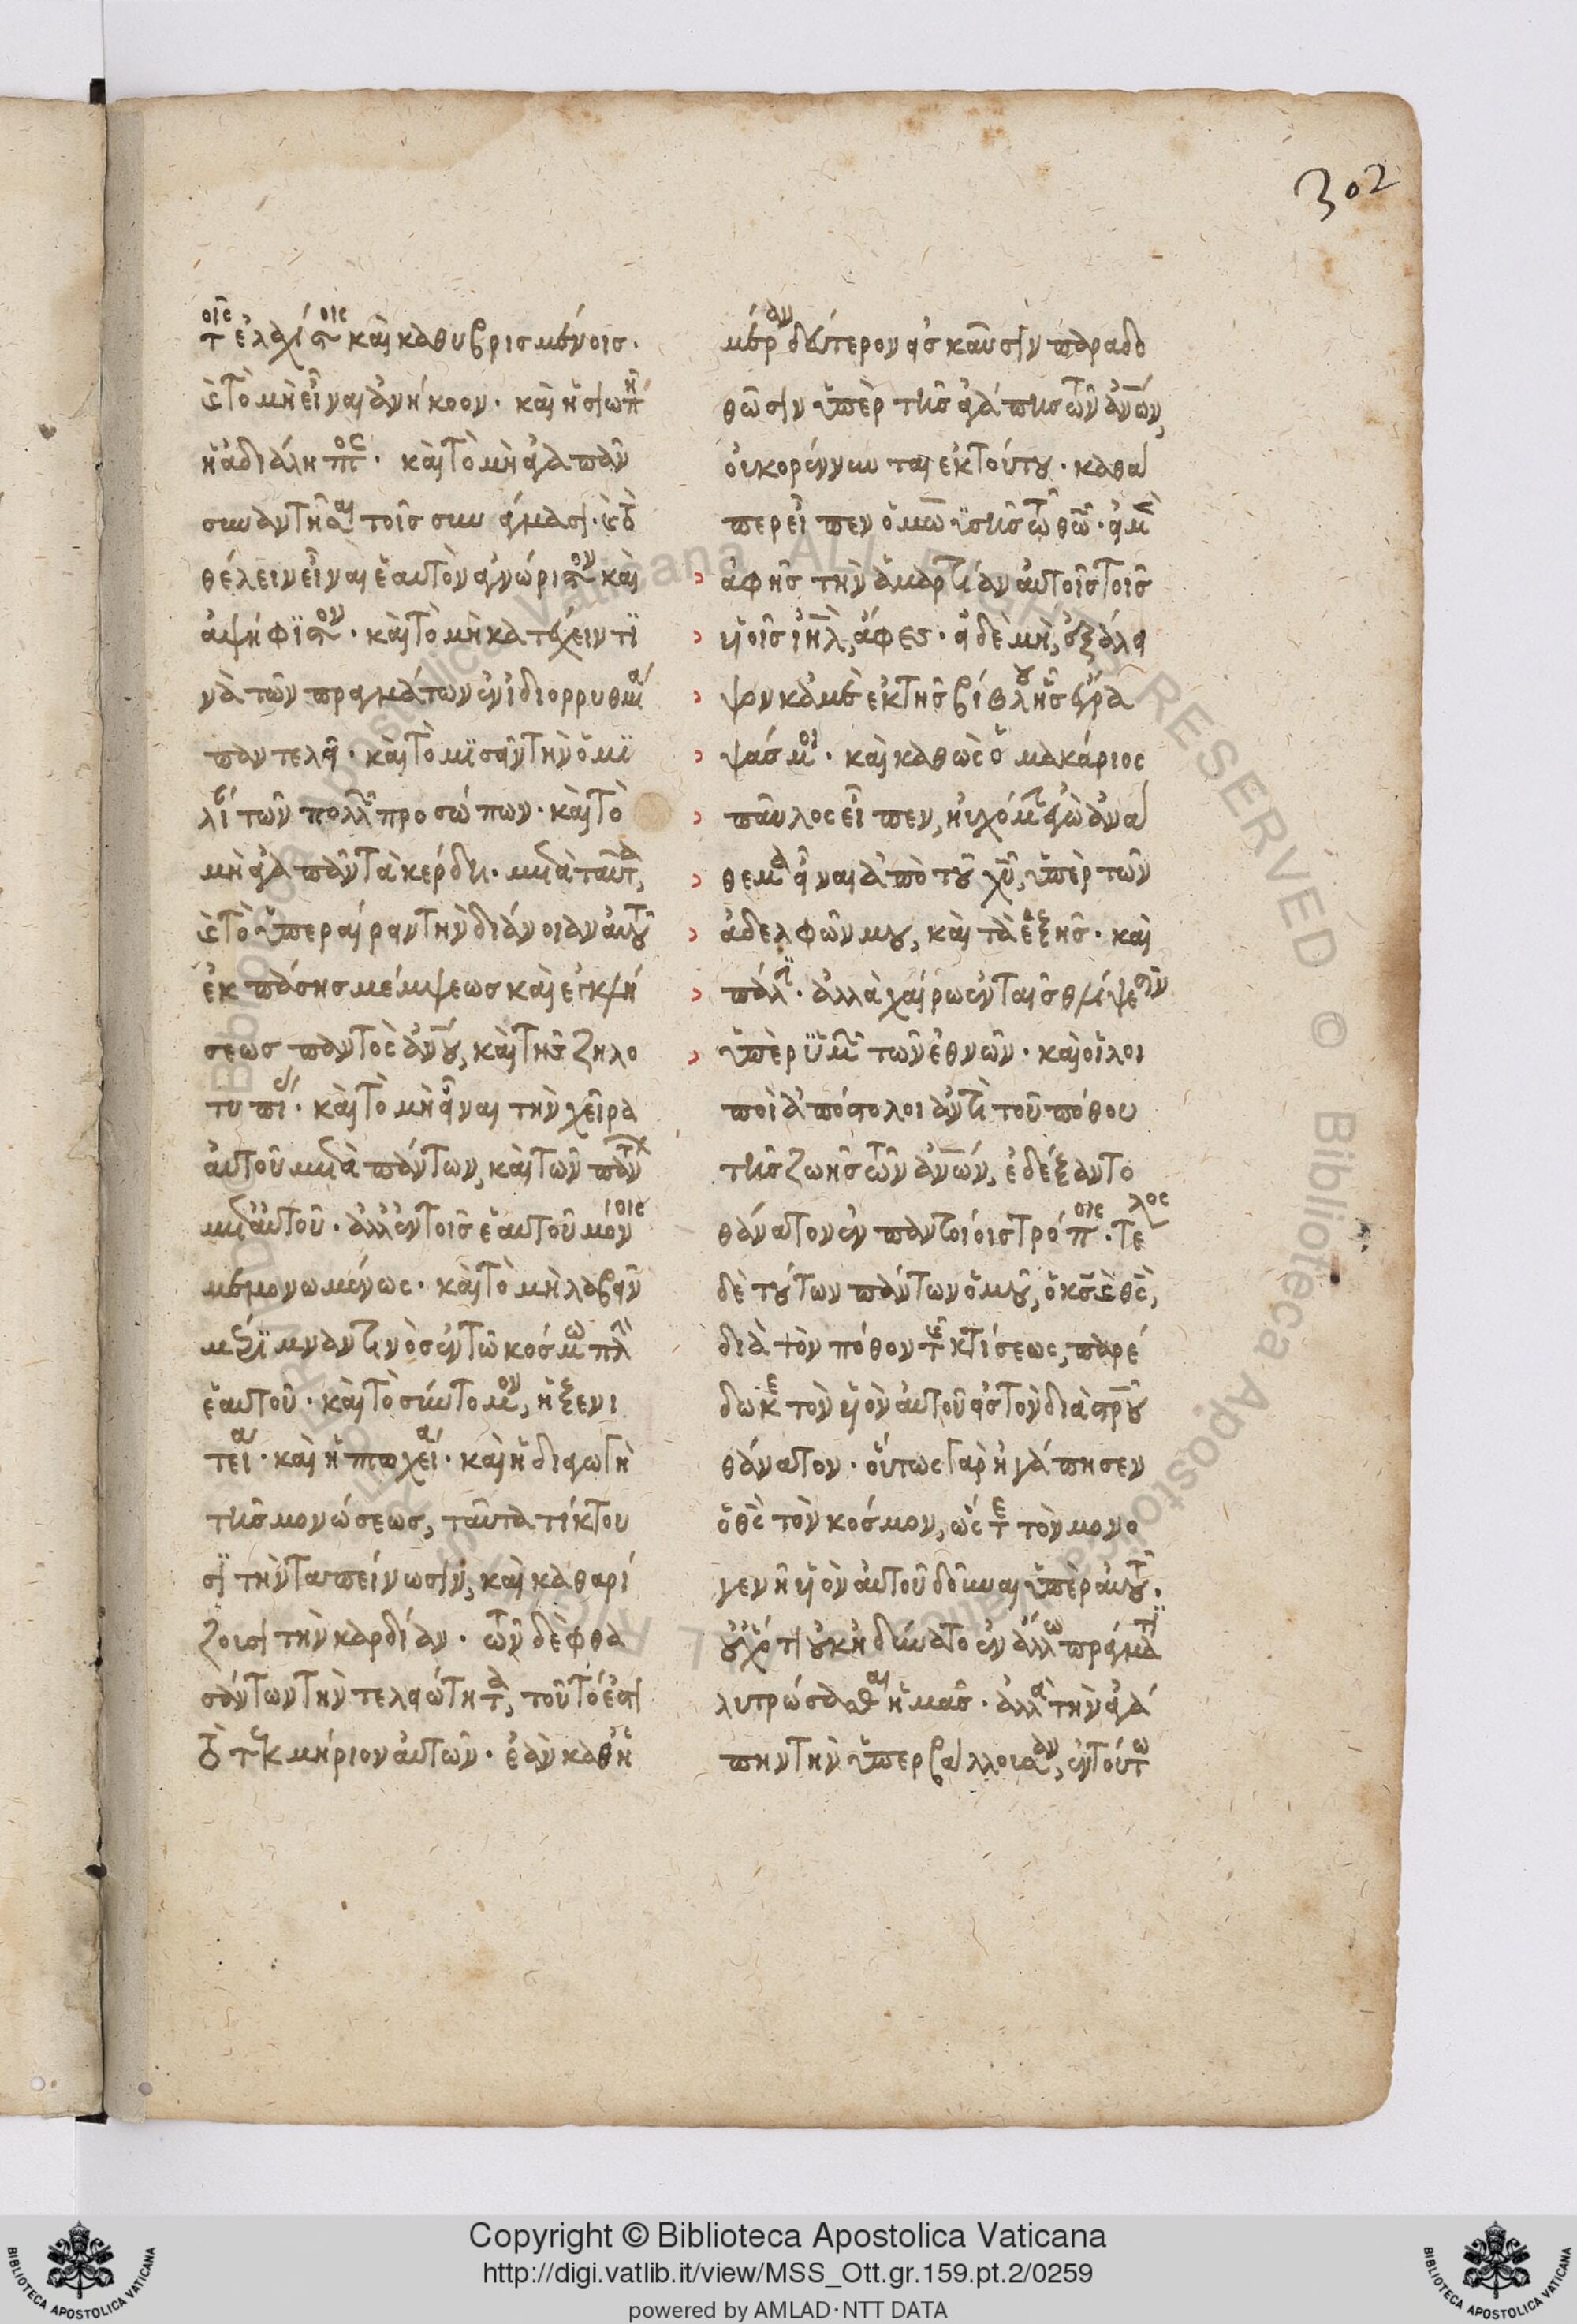 302
τοῖς ἐλαχίστοις καὶ καθυβρισμένοις.
καὶ τὸ μὴ εἶναι ἀνήκοον. καὶ ἡ σιωπὴ
ἡ ἀδιάλειπτος. καὶ τὸ μὴ ἀγαπᾶν
συναντηθῆναι τοῖς συνάγμασι. καὶ τὸ
θέλειν εἶναι ἑαυτὸν ἀγνώριστον καὶ
ἀψήφιστον. καὶ τὸ μὴ κατέχειν τι
νὰ τῶν πραγμάτων ἐν ἰδιορρυθμίᾳ
παντελεῖ. καὶ τὸ μισεῖν τὴν ὁμι
λίαν τῶν πολλῶν προσώπων. καὶ τὸ
μὴ ἀγαπᾶν τὰ κέρδη. μετὰ ταῦτα,
καὶ τὸ ὑπεραίρειν τὴν διάνοιαν αὐτοῦ
ἐκ πάσης μέμψεως καὶ ἐγκλή
σεως παντὸς ἀνου, καὶ τῆς ζηλο
τυπίας. καὶ τὸ μὴ εἶναι τὴν χεῖρα
αὐτοῦ μετὰ πάντων, καὶ τῶν πάντων
μετ᾽ αὐτοῦ. ἀλλ᾽ ἐν τοῖς ἑαυτοῦ μόνοις
μεμονωμένως. καὶ τὸ μὴ λαβεῖν
μέριμναν τινὸς ἐν τῷ κόσμῳ πλὴν
ἑαυτοῦ. καὶ τὸ σύντομον, ἡ ξενι
τεία. καὶ ἡ πτωχεία. καὶ ἡ διαγωγὴ
τῆς μονώσεως, ταῦτα τίκτου
σι τὴν ταπείνωσιν, καὶ καθαρί
ζουσι τὴν καρδίαν. τῶν δὲ φθα
σάντων τὴν τελειότητα, τοῦτό ἐστι
τὸ τεκμήριον αὐτῶν. ἐὰν καθ᾽ ἡ
μέραν δεύτερον εἰς καῦσιν παραδο
θῶσιν ὑπὲρ τῆς ἀγάπης τῶν ἀνων,
οὐ κορέννυνται ἐκ τούτου. καθα
περ εἶπεν ὁ μωυσῆς τῷ θεῷ. εἰ μὲν
ἀφῇς τὴν ἁμαρτίαν αὐτοῖς τοῖς
υἱοῖς ιηλ, ἄφες. εἰ δὲ μὴ, ἐξάλει
ψον κἀμὲ ἐκ τῆς βίβλου ἧς ἔγρα
ψάς με. καὶ καθὼς ὁ μακάριος
παῦλος εἶπεν, ηὐχόμην ἐγὼ ἀνα
θεμα εἶναι ἀπὸ τοῦ χυ, ὑπὲρ τῶν
ἀδελφῶν μου, καὶ τὰ ἑξῆς. καὶ
πάλιν. ἀλλὰ χαίρω ἐν ταῖς θλίψεσιν
ὑπὲρ ὑμῶν τῶν ἐθνῶν. καὶ οἱ λοι
ποὶ ἀπόστολοι ἀντὶ τοῦ πόθου
τῆς ζωῆς τῶν ἀνων, ἐδέξαντο
θάνατον ἐν παντοίοις τρόποις. τέλος
δὲ τούτων πάντων ὁμοῦ, ὁ κς καὶ θς,
διὰ τὸν πόθον τῆς κτίσεως, παρέ
δωκε τὸν υἱὸν αὐτοῦ εἰς τὸν διὰ στρου
θάνατον. οὕτως γὰρ ἠγάπησεν
ὁ θς τὸν κόσμον, ὥστε τὸν μονο
γενῆ υἱὸν αὐτοῦ δοῦναι ὑπὲρ αὐτοῦ.
οὐχ ὅτι οὐκ ἠδύνατο ἐν ἄλλῳ πράγματι
λυτρώσασθαι ἡμᾶς. ἀλλὰ τὴν ἀγά
πην τὴν ὑπερβάλλουσαν, ἐν τούτῳ
Copyright © Biblioteca Apostolica Vaticana
http://digi.vatlib.it/view/MSS_Ott.gr.159.pt.2/0259
powered by AMLAD·NTT DATA